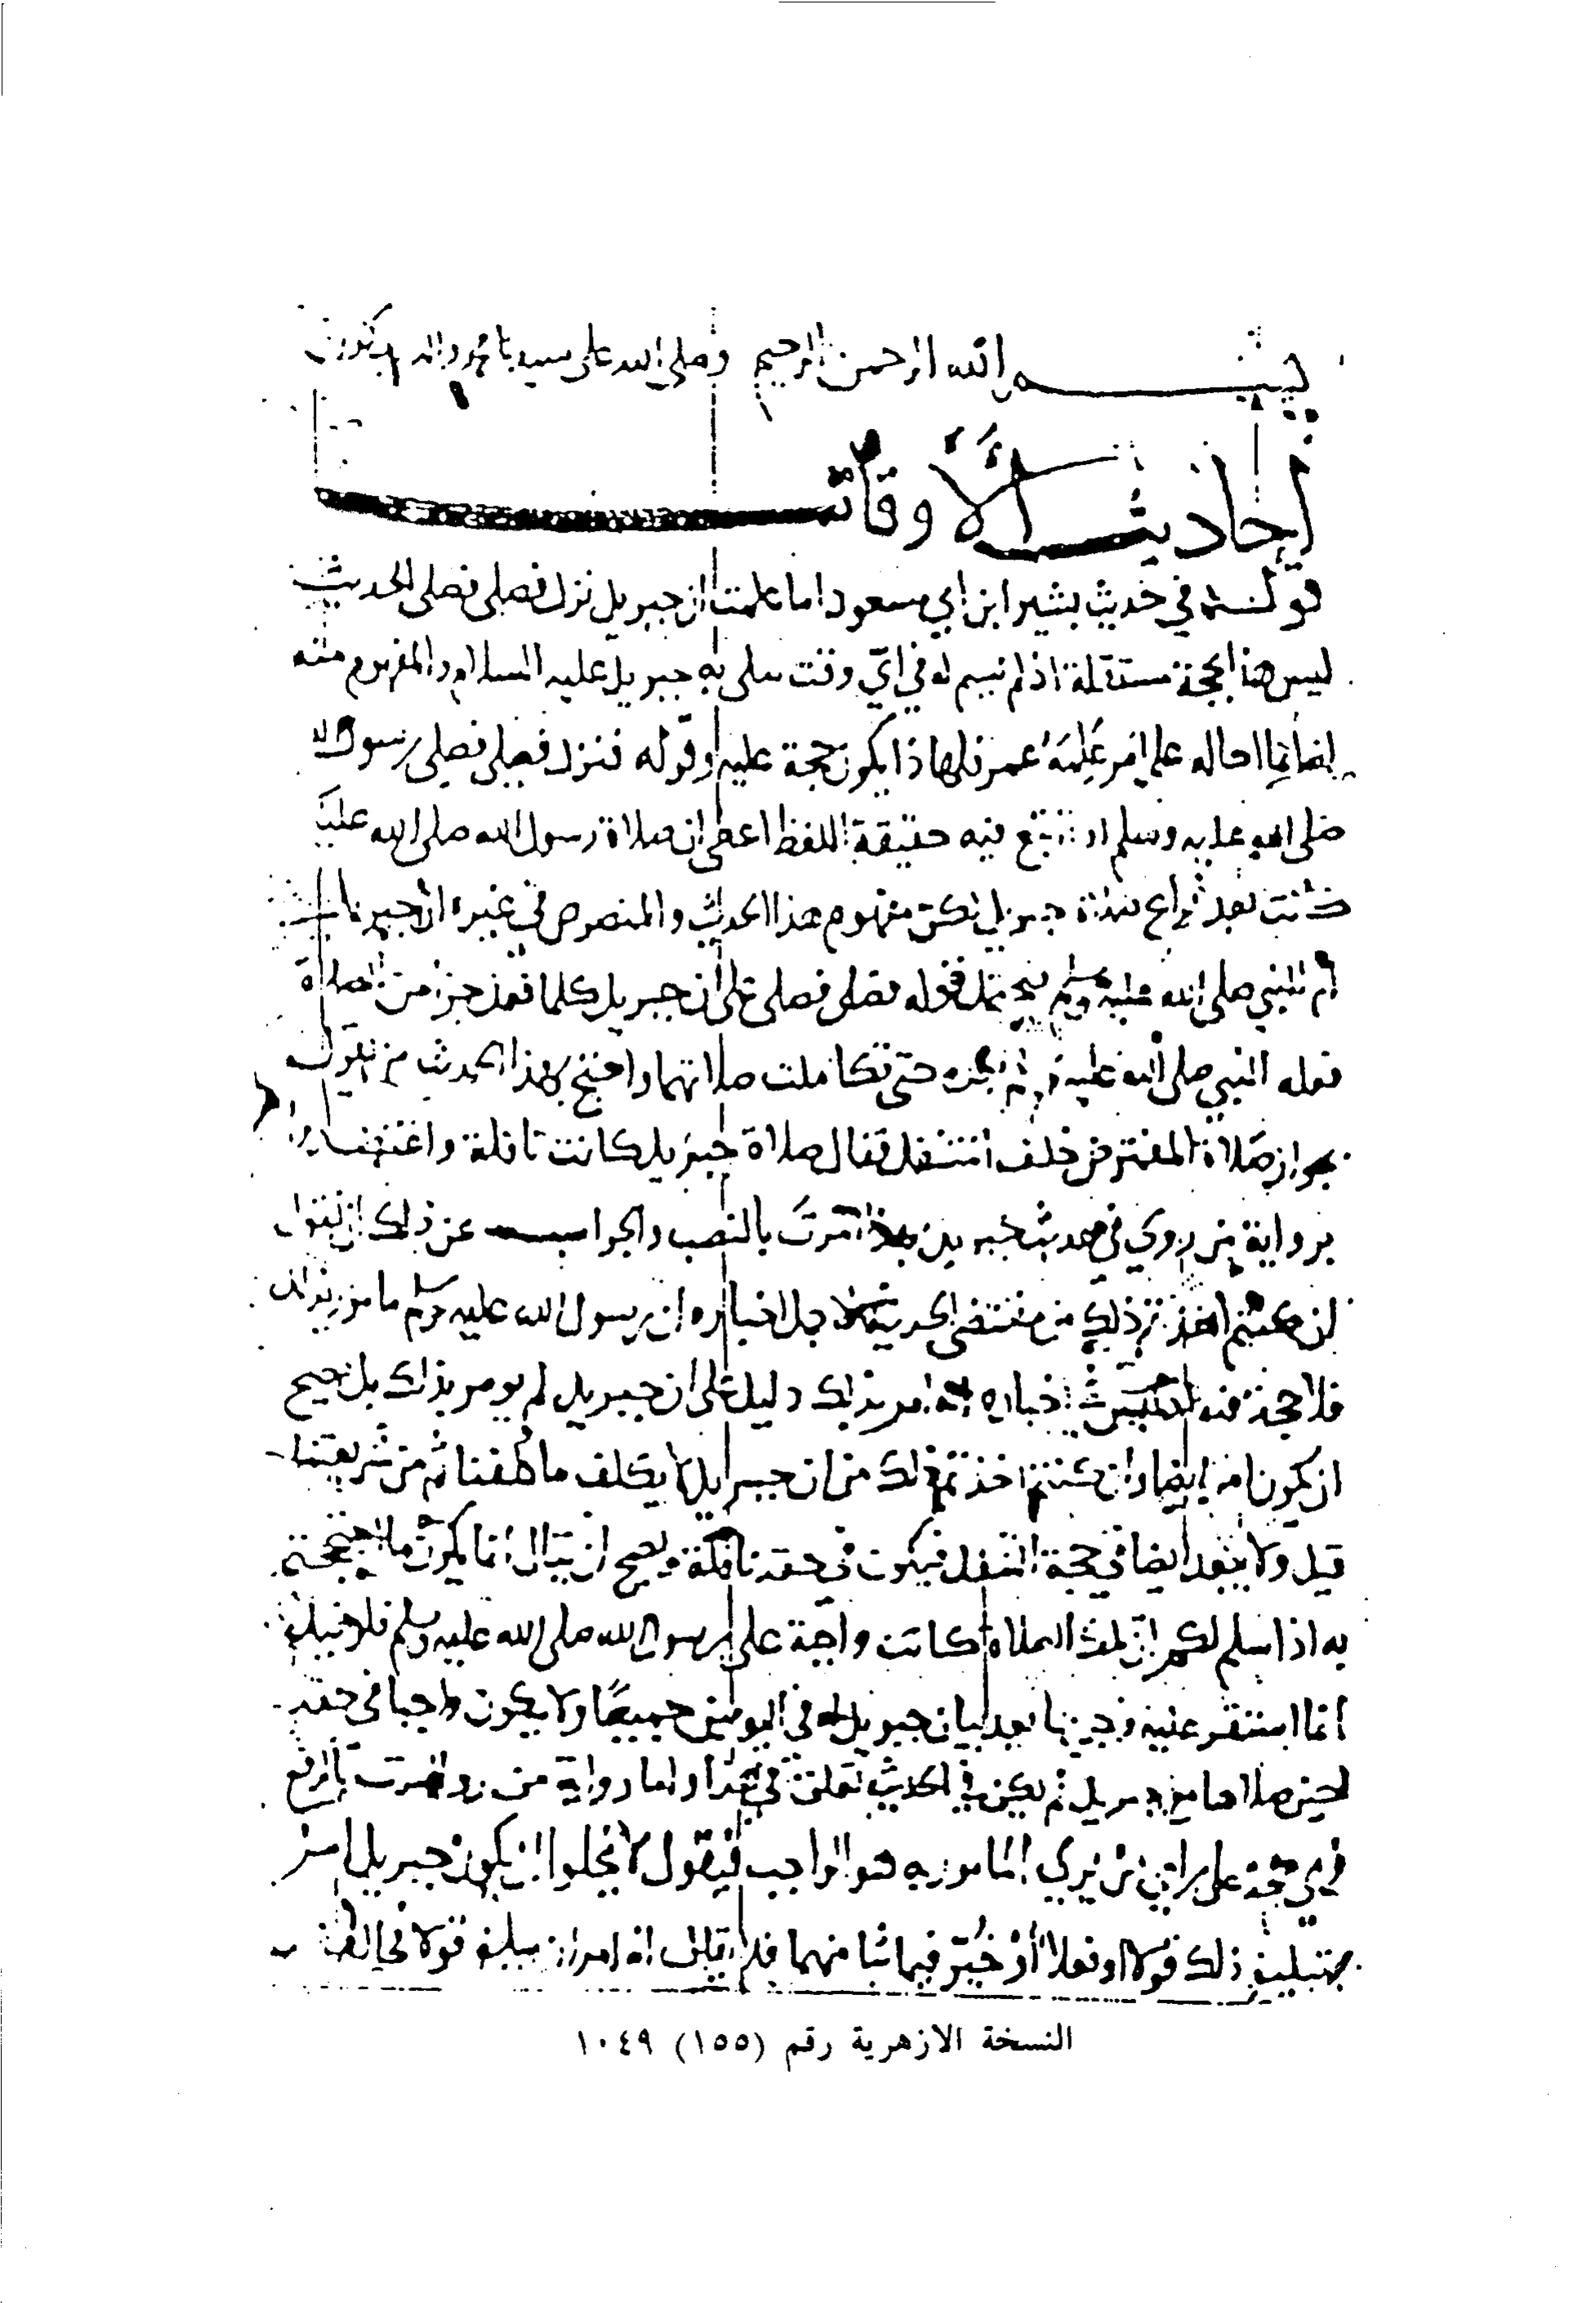 بسم الله الرحمن الرحيم وصلى الله على سيدنا محمد واله
احاديث الأوقات
قوله في حديث بشير ابن ابي مسعود اما علمت ان جبريل نزل فصلى فصلى الحديث
ليس هذا بحجة مستقلة اذ لم يسم له في اي وقت صلى به جبريل عليه السلام والمفهوم منه
انما احاله على امر علمه عمر فلهاذا يكون حجة عليه وقوله فنزل فصلى فصلى رسول الله
صلى الله عليه وسلم اذ تتبع فيه حقيقة اللفظ اعطى ان صلاة رسول الله صلى الله عليه
كانت بعد فراغ صلاة جبريل لكن مفهوم هذا الحديث والمنصوص في غيره ان جبريل
ام النبي صلى الله عليه وسلم فيحمل قوله فصلى فصلى على ان جبريل كلما فعل جزا من الصلاة
فعله النبي صلى الله عليه حتى تكاملت صلاتهما واحتج بهذا الحديث من يقول
بجواز صلاة المفترض خلف المتنفل فقال صلاة جبريل كانت نافلة واعتضدوا
برواية من روي في حديث جبريل بهذا امرت بالنصب والجواب عن ذلك ان نقول
ان كنتم اخذتم ذلك من مقتضى الحديث لاجل اخباره ان رسول الله عليه وسلم مامور بذلك
فلا حجة فيه اذ ليس اخباره انه امر بذلك دليل على ان جبريل لم يومر بذلك بل يصح
ان يكون امر ايضا وان كنتم اخذتم ذلك من ان جبرايل لا يكلف ما كلفنا نحن من شريعتنا
قيل ولا يبعد ايضا في حجة التنفل فيكون في حقه نافلة ويصح ان يقال انما يكون ما احتججتم
به اذا سلم لكم ان تلك الصلاة كانت واجبة على رسول الله صلى الله عليه وسلم فلا
انما استقر عليه وجوبها بعد بيان جبريل له في اليومين جميعا ولا يكون واجبا في حقه
لحين صلاها مع جبريل لم يكن في الحديث تعلق في هذا واما رواية من روا امرت بالرفع
فهي حجة على راي من يري المامور به هو الواجب فيقول لا يخلوا ان يكون جبريل امر
بتبليغ ذلك قولا او فعلا او خير فيما شا منهما فلم يقل انه امر ان يبلغه قولا فخالف
النسخة الازهرية رقم (١٥٥) ١٠٤٩